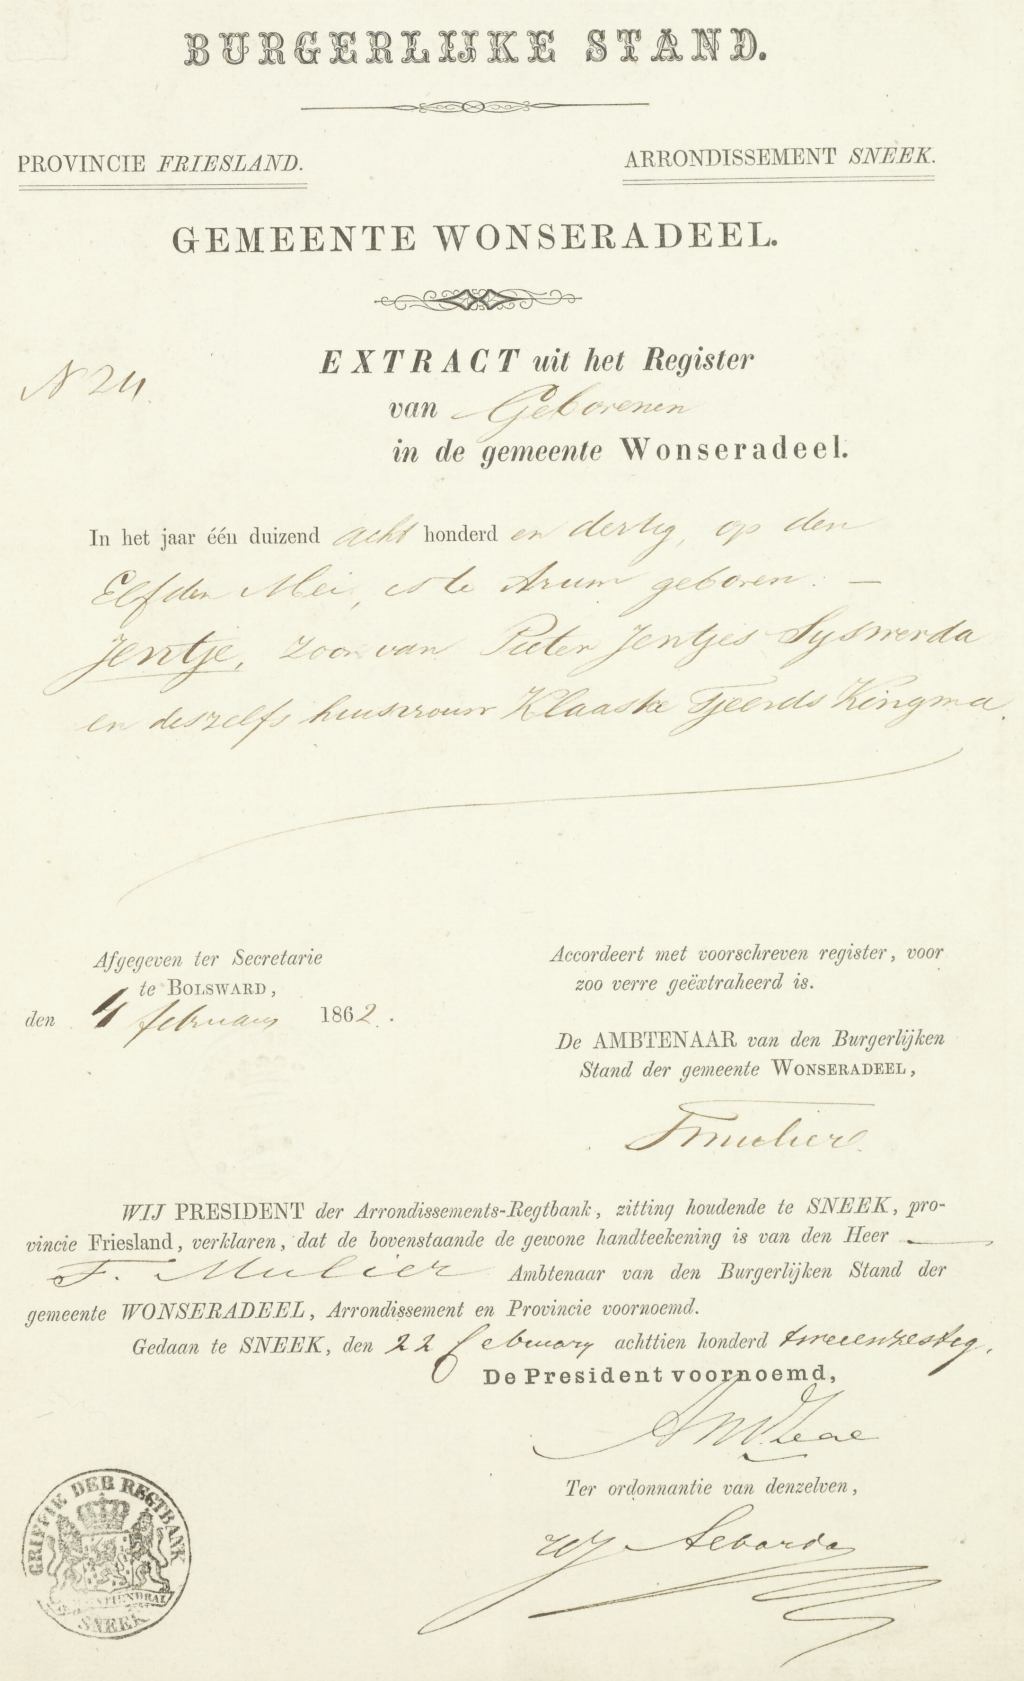 BURGERLIJKE STAND.
PROVINCIE FRIESLAND.
ARRONDISSEMENT SNEEK.
GEMEENTE WONSERADEEL.
N 24.
EXTRACT uit het Register
van Geborenen
in de gemeente Wonseradeel.
In het jaar één duizend acht honderd en dertig, op den
Elfden Mei, is te Arum geboren. —
Jentje, zoon van Pieter Jentjes Sijswerda
en deszelfs huisvrouw Klaaske Tjeerds Kingma.
Afgegeven ter Secretarie
te BOLSWARD,
den 4 februarij 1862.
Accordeert met voorschreven register, voor
zoo verre geëxtraheerd is.
De AMBTENAAR van den Burgerlijken
Stand der gemeente WONSERADEEL,
F Mulier
WIJ PRESIDENT der Arrondissements-Regtbank, zitting houdende te SNEEK, pro-
vincie Friesland, verklaren, dat de bovenstaande de gewone handteekening is van den Heer —
F. Mulier Ambtenaar van den Burgerlijken Stand der
gemeente WONSERADEEL, Arrondissement en Provincie voornoemd.
Gedaan te SNEEK, den 22 february achttien honderd tweeenzestig.
De President voornoemd,
Ter ordonnantie van denzelven,
GRIFFIE DER REGTBANK
SNEEK